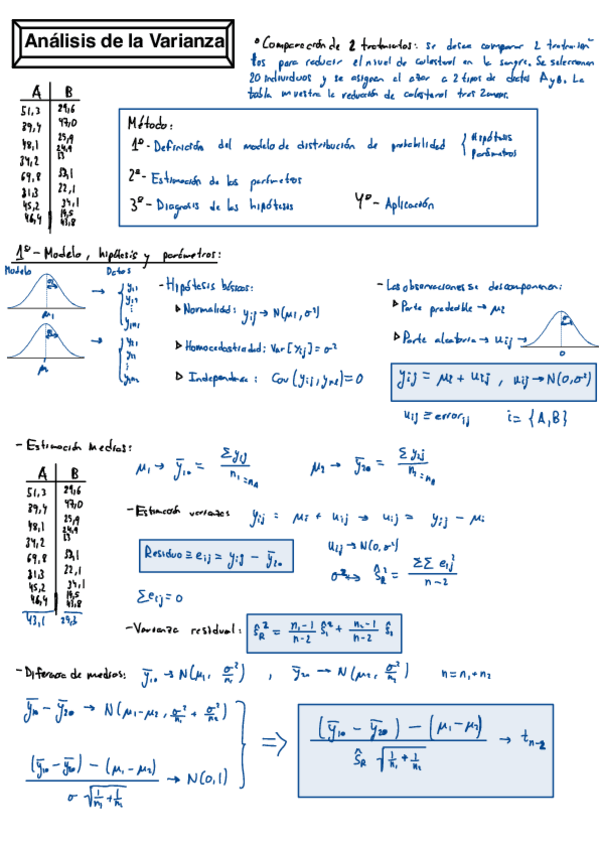 Análisis de la Varianza
• Comparación de 2 tratamientos: Se desea comparar 2 tratamien
tos para reducir el nivel de colesterol en la sangre. Se seleccionan
20 individuos y se asignan al azar a 2 tipos de dietas A y B. La
tabla muestra la reducción de colesterol tras 2 meses.
A B
51,3 29,6
39,4 47,0
48,1 25,9
34,2
69,8
31,3 22,1
45,2 34,1
46,4
Método:
1º- Definición del modelo de distribución de probabilidad { Hipótesis
Parámetros
2º- Estimación de los parámetros
3º- Diagnosis de las hipótesis 4º- Aplicación
1º- Modelo, hipótesis y parámetros:
Modelo Datos
μ1
- Hipótesis básicas:
▷ Normalidad: yij → N(μi, σ²)
▷ Homocedasticidad: Var[yij] = σ²
▷ Independencia: Cov(yij, ykl) = 0
- Las observaciones se descomponen:
▷ Parte predecible → μi
▷ Parte aleatoria → uij →
0
yij = μi + uij, uij → N(0,σ²)
uij ≡ errorij i = {A,B}
- Estimación Medias:
μ1 → ȳ1• = Σy1j / n1=nA
μ2 → ȳ2• = Σy2j
A B
51,3 29,6
39,4 47,0
48,1 25,9
34,2
69,8
31,3 22,1
45,2 34,1
46,4
43,1 29,3
- Estimación varianzas yij = μi + uij → uij = yij - μi
Residuo ≡ eij = yij - ȳi•
uij → N(0,σ²)
σ² ↔ ŝR² = ΣΣ eij² / n-2
Σeij = 0
- Varianza residual: ŝR² = n1-1 / n-2 ŝ1² + n2-1 / n-2 ŝ2
- Diferencia de medias: ȳ1• → N(μ1, σ²/n1) , ȳ2• → N(μ2, σ²/n2) n = n1 + n2
ȳ1• - ȳ2• → N(μ1-μ2, σ²/n1 + σ²/n2)
(ȳ1• - ȳ2•) - (μ1-μ2) / σ √(1/n1 + 1/n2) → N(0,1)
⇒ (ȳ1• - ȳ2•) - (μ1-μ2) / ŝR √(1/n1 + 1/n2) → tn-2